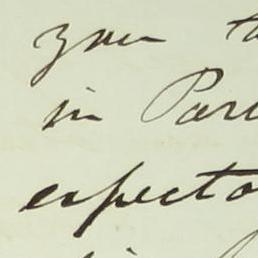 you t
in Pari
expecta